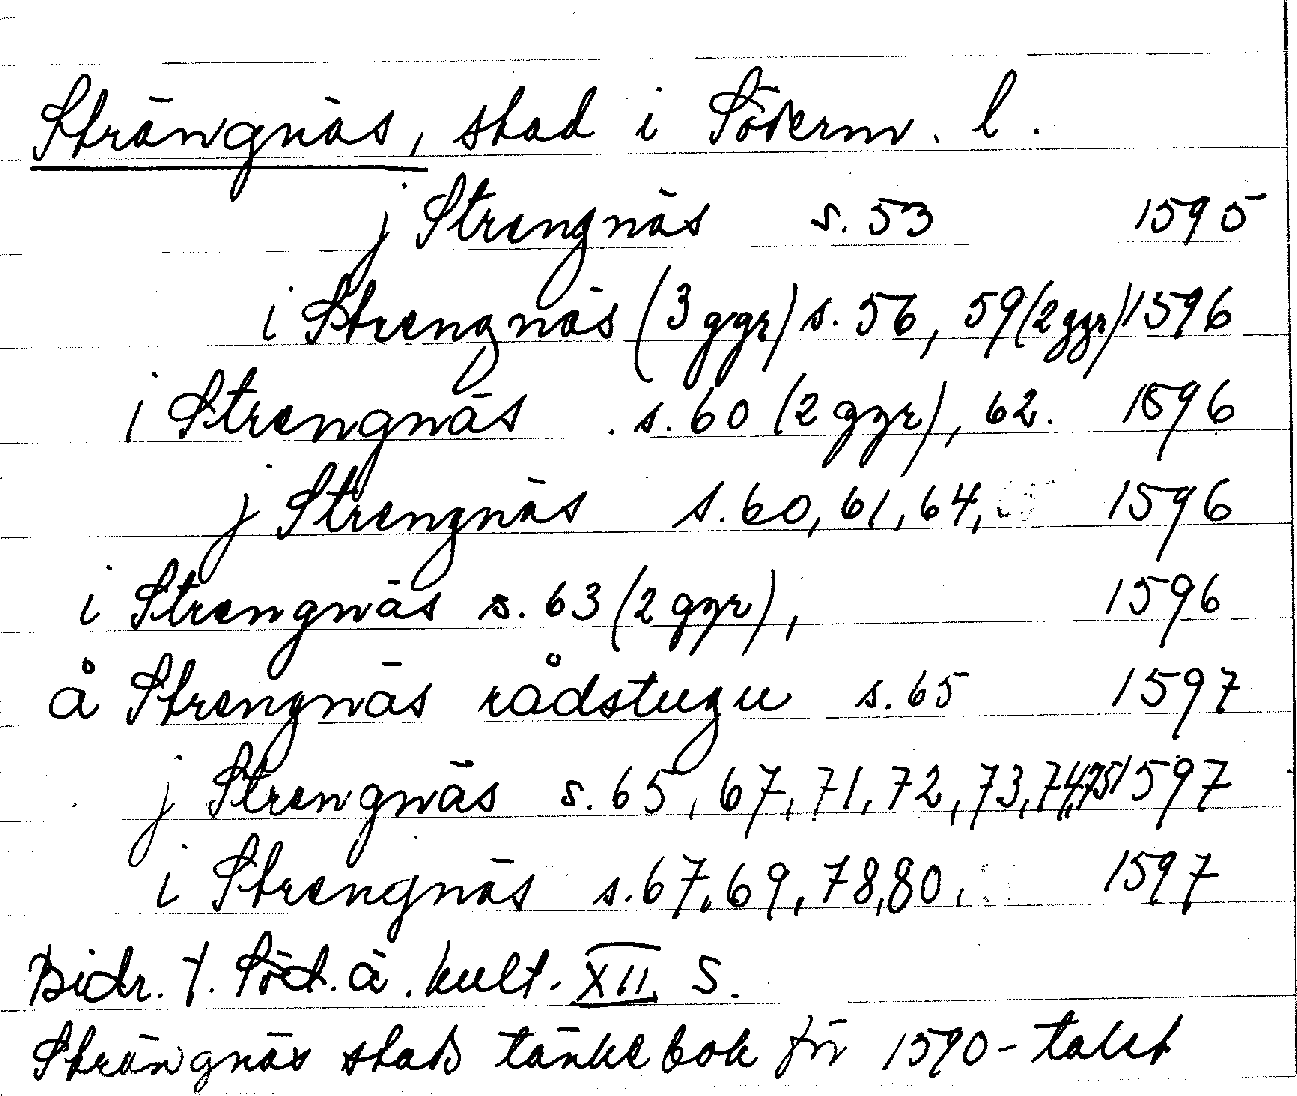 Strängnäs, stad i Söderm. l.
j Strengnäs s. 53 1595
i Strengnäs (3 ggr) s. 56, 59 (2 ggr) 1596
i Strengnäs s. 60 (2 ggr), 62. 1596
j Strengnäs s. 60, 61, 64, 1596
i Strengnäs s. 63 (2 ggr), 1596
å Strengnäs rådstugu s. 65 1597
j Strengnäs s. 65, 67, 71, 72, 73, 74, 75 1597
i Strengnäs s. 67, 69, 78, 80. 1597
Bidr. t. Söd. ä. kult. XII S.
Strängnäs stads tänkebok för 1590-talet